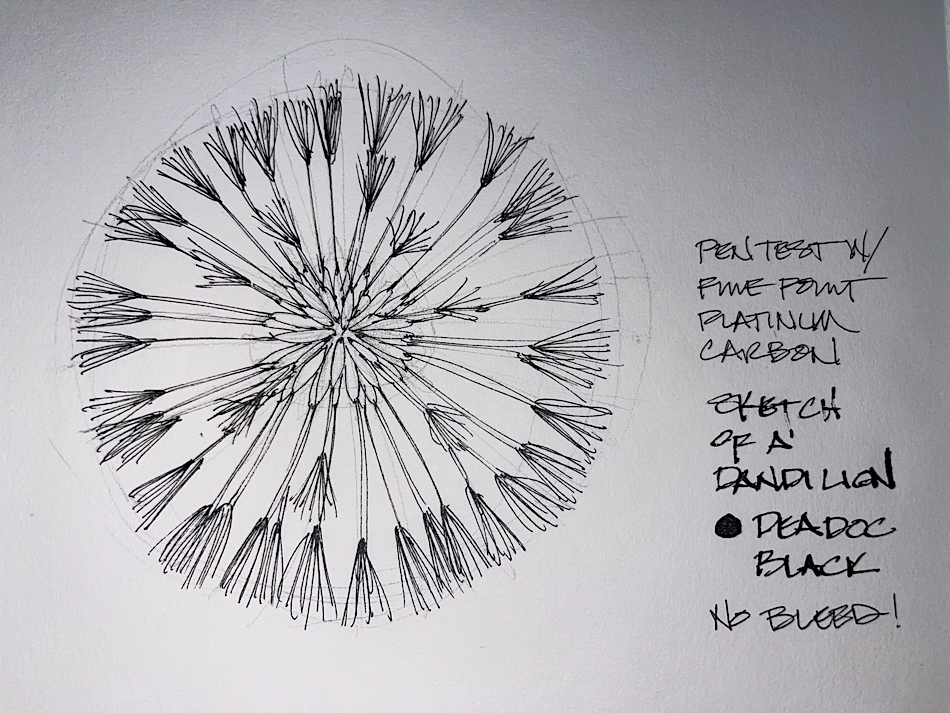 PEN TEST W/
FINE POINT
PLATINUM
CARBON
SKETCH
OF A
DANDILION
DEADOC
BLACK
NO BLEED!